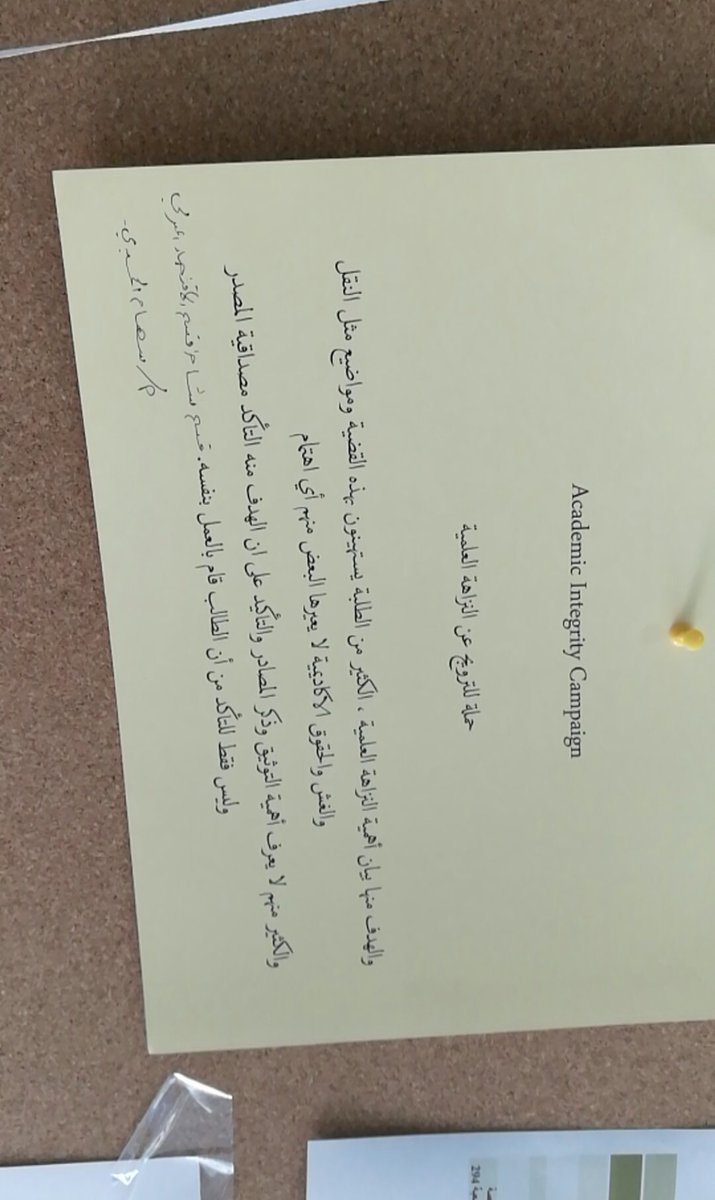 Academic Integrity Campaign
حملة للترويج عن النزاهة العلمية
والهدف منها بيان أهمية النزاهة العلمية ، الكثير من الطلبة يستهينون بهذه القضية ومواضيع مثل النقل
والغش والحقوق الاكاديمية لا يعيرها البعض منهم أي اهتمام
والكثير منهم لا يعرف أهمية التوثيق وذكر المصادر والتأكيد على ان الهدف منه التأكد مصداقية المصدر
وليس فقط للتأكد من أن الطالب قام بالعمل بنفسه.
294